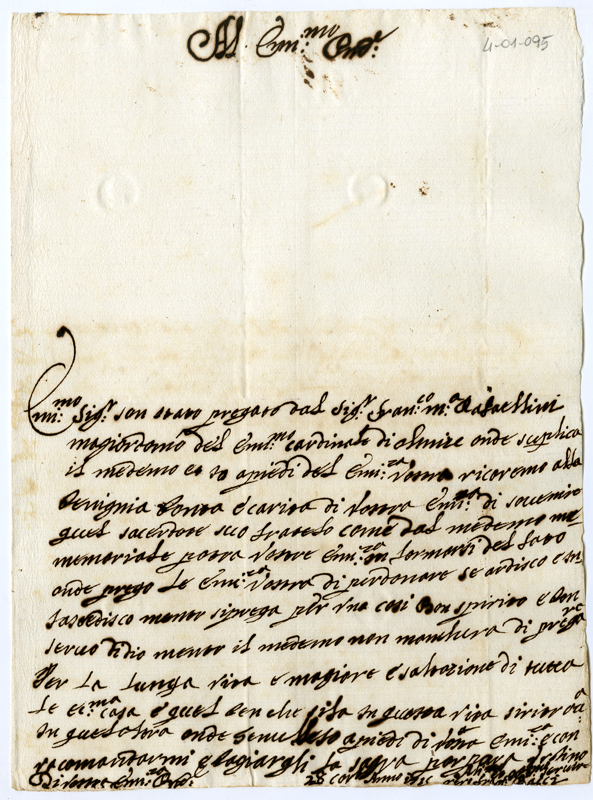 Al. Em:mo Sig:r
4-01-095
Em:mo Sig:r son stato pregato dal Sig:r Fran:co m:a Rafaellini
magiordomo del Em:mo Cardinale di onde suplica
il medemo et io apiedi del Emi:za Vostra ricoremo alla
benignia bonta e carita di Vostra Emi:za di souenire
quel sacerdote suo fratelo come dal medemo me
memoriale potra Vostre Emi:za in formarsi del fato
onde prego le Emi:za Vostra di perdonare se ardisco e in
fastedisco mentre si prega per una cosi bon spirito e bon
seruo di dio mentre il medemo non manchera di prega
Per la lunga vita e magiore esaltazione di tutta
le ec:ma casa e quel ben che si fa in questa vita si
in quel altra onde genuflesso apiedi di Vostra Emi:za e con
racomandarmi e la sagra porpora
di Vostra Emi:za